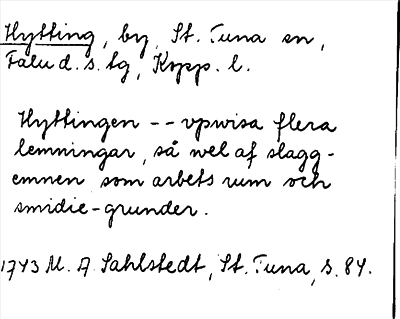 Hytting, by, St. Tuna sn,
Falu d. s. tg, Kopp. l.
Hyttingen -- vpwisa flera
lemningar, så wel af slagg-
emnen som arbets rum och
smidie-grunder.
1743 M. A Sahlstedt, St. Tuna, s. 84.